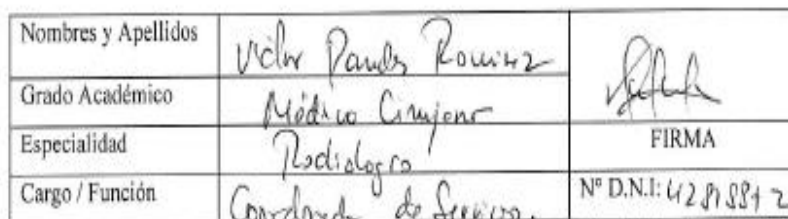 Nombres y Apellidos Victor Ramirez
Grado Académico Médico Cirujano
Especialidad Radiologia
FIRMA
Cargo / Función Coordinador de Servicio.
Nº D.N.I: